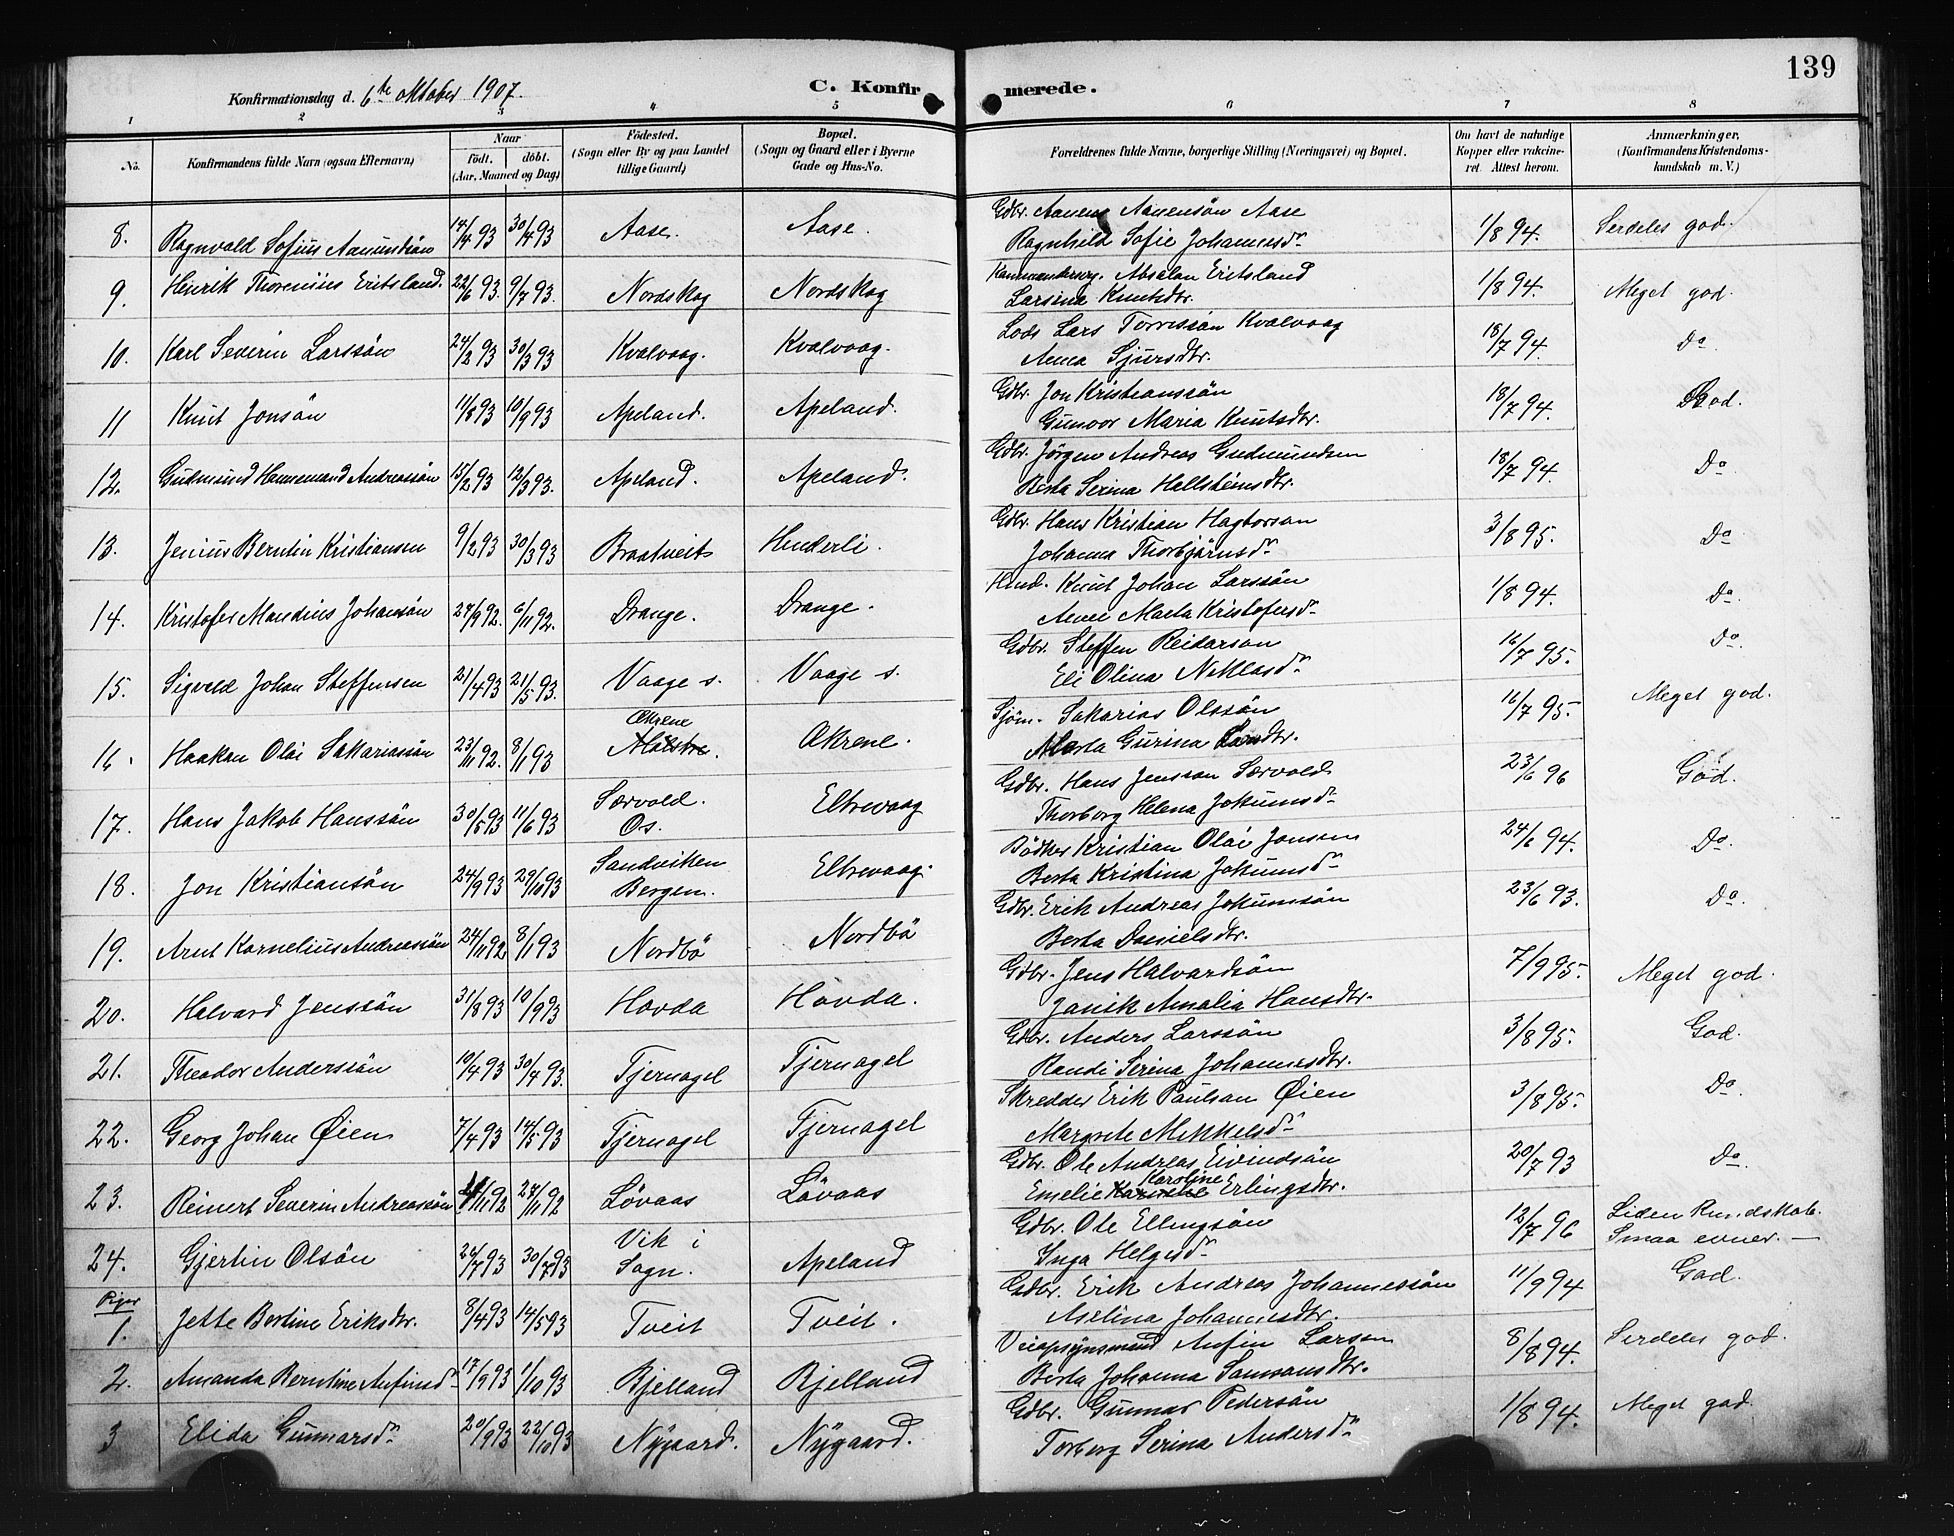 139
Konfirmationsdag d. 6te oktober 1907.
C. Konfirmerede.
1 2 3 4 5 6 7 8
No.
Konfirmandens fulde Navn (ogsaa Efternavn)
Naar
födt. döbt.
(Aar, Maaned og Dag)
Födested.
(Sogn eller By og paa Landet
tillige Gaard)
Bopæl.
(Sogn og Gaard eller i Byerne
Gade og Hus-No.
Forældrenes fulde Navne, borgerlige Stilling (Næringsvei) og Bopæl.
Om havt de naturlige
Kopper eller vakcine-
ret. Attest herom.
Anmærkninger,
(Konfirmandens Kristendoms-
kundskab m. V.)
8. Ragnvald Sofius Aanundsön 14/4 93 30/4 93 Aase. Aase.
Gdbr. Aanen Aanensön Aase
Ragnhild Sofie Johannesdr
1/8 94. Særdeles god.
9. Henrik Thorenius Eritsland. 22/6 93. 9/7 93. Nordskog Nordskog
Absalon Eritsland
Larsina Knutsdtr.
1/8 94. Meget god.
10. Karl Severin Larssön 24/2 93 30/3 93 Kvalvaag. Kvalvaag.
Lods Lars Torressön Kvalvaag
Anna Sjursdtr.
18/7 94. Do.
11 Knut Jonsön 11/8 93 10/9 93 Apeland. Apeland.
Gdbr. Jon Kristianssön
Gunvor Maria Knutsdtr.
18/7 94. God.
12. Gudmund Hannemand Andreassön 15/2 93 12/3 93. Apeland. Apeland.
Gdbr. Jörgen Andreas Gudmundsen
Berta Serina Hallsteinsdtr.
18/7 94. Do
13. Jenius Berntin Kristiansen 9/2 93 30/3 93 Braatveit Henderli.
Gdbr. Hans Kristian Hagtorsen
Johanna Thorbjörnsdr
3/8 95. Do
14. Kristofer Mandius Johansön 24/9 92. 6/11 92. Drange. Drange.
Knut Johan Larssön
Anne Marta Kristofersdr
1/8 94. Do.
15. Sigvald Johan Steffensen 21/4 93 21/5 93. Vaage s. Vaage s.
Gdbr. Steffen Reidarson
Eli Olina Niklasdr
16/7 95. Do.
16. Haakon Olai Sakariassön 23/11 92. 8/1 93 Økrene Økrene.
Sjöm. Sakarias Olssön
Marta Gurina Larsdtr.
16/7 95. Meget god.
17. Hans Jakob Hanssön 30/5 93 11/6 93 Særvold. Os. Eltrevaag
Gdbr. Hans Jensson Særvold
Thorborg Helena Jokumsdr
23/6 96 God.
18. Jon Kristiansön 24/9 93 29/10 93 Sandviken Bergen. Eltrevaag.
Bödker Kristian Olai Jonsen
Berta Kristina Jokumsdr
24/6 94. Do.
19. Arnt Kornelius Andreassön 24/11 92 8/1 93 Nordbö Nordbö
Gdbr. Erik Andreas Jokumsön
Berta Danielsdtr.
23/6 93. Do.
20. Halvard Jenssön 31/8 93 10/9 93 Hovda Hovda.
Gdbr. Jens Halvardsön
Janik Amalia Hansdtr.
7/9 95. Meget god.
21. Theodor Anderssön 10/4 93 30/4 93. Tjernagel Tjernagel
Gdbr. Anders Larssön
Randi Serina Johannesdtr.
3/8 95. God.
22. Georg Johan Øien 7/4 93 14/5 93 Tjernagel Tjernagel
Skredder Erik Paulsen Øien
Margrete Mikkelsdr
3/8 95. Do.
23. Reinert Severin Andreassön 27/11 92 Lövaas Lövaas
Gdbr. Ole Andreas Eivindsön
Karoline
Emelie Erlingsdtr.
20/7 93 Do.
24. Gjertin Olsön 26/7 93 30/7 93 Vik i Sogn. Apeland
Gdbr. Ole Ellingsön
Inga Helgesdr
12/7 96 Liden Kundskab. Smaa evner. —
Piger
1. Jette Bertine Eriksdtr. 8/4 93 14/5 93 Tveit Tveit.
Gdbr. Erik Andreas Johannessön
Aselina Johannesdtr.
11/9 94 God.
2. Amanda Berntine Anfinnsdr 17/9 93 1/10 93 Bjelland Bjelland
Veiopsynsmand Anfin Larsen
Berta Johanna Samsonsdtr.
8/8 94. Særdeles god.
3 Elida Gunnarsdr 20/9 93 22/10 93 Nygaard. Nygaard.
Gdbr. Gunnar Pedersön
Torborg Serina Andersdr
1/8 94. Meget god.